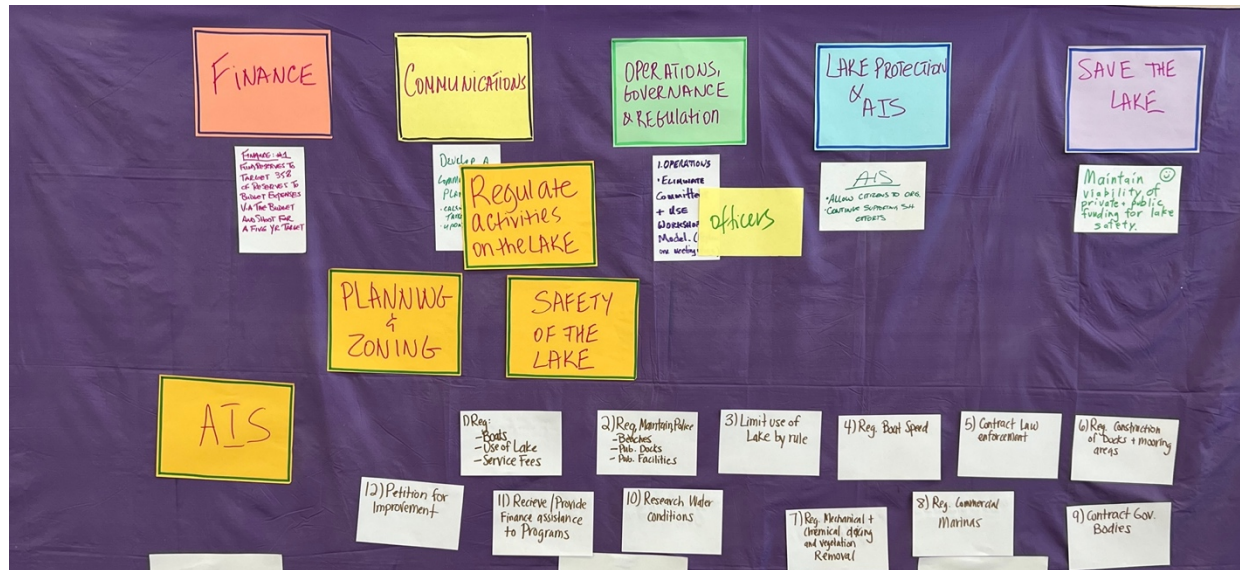 FINANCE
COMMUNICATIONS
OPERATIONS,
GOVERNANCE
& REGULATION
LAKE PROTECTION
&
AIS
SAVE THE
LAKE
FINANCE: #1
RESERVES TO
TARGET 35%
OF RESERVES TO
BUDGET EXPENSES
VIA THE BUDGET
AND SHOOT FOR
A FIVE YR TARGET
DEVELOP A
Regulate
activities
on the LAKE
1. OPERATIONS
• ELIMINATE
Committee
+ USE
WORKSHOP
Model.
one meeting
officers
AIS
• ALLOW CITIZENS TO ORG.
• CONTINUE SUPPORTING
EFFORTS
Maintain
viability of
private + public
funding for lake
safety.
PLANNING
&
ZONING
SAFETY
OF THE
LAKE
AIS
1) Reg:
- Boats
- Use of Lake
- Service Fees
2) Req, Maintain, Police
- Beaches
- Pub. Docks
- Pub. Facilities
3) Limit use of
Lake by rule
4) Reg. Boat Speed
5) Contract Law
enforcement
6) Reg. Construction
of Docks + mooring
areas
12) Petition for
Improvement
11) Recieve/Provide
Finance assistance
to Programs
10) Research Water
conditions
7) Reg. Mechanical +
chemical deicing
and vegetation
Removal
8) Reg. Commercial
Marinas
9) Contract Gov.
Bodies